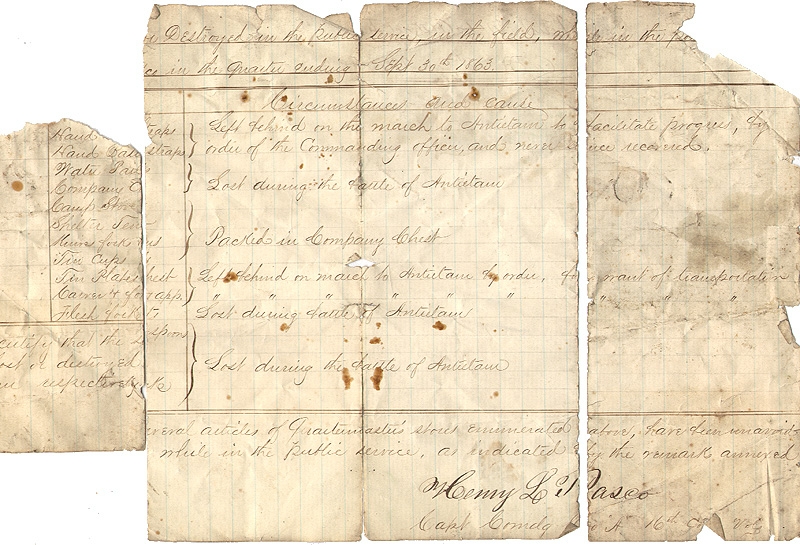 Destroyed in the public service, in the field, while in the
in the Quarter ending Sept 30th 1863.
Circumstances and cause
Hand
Left behind on the march to Antietam to facilitate progress, by
Hand straps
order of the Commanding officer, and never since recovered.
Water
Company
Lost during the battle of Antietam
Camp
Shelter Ten
Packed in Company Chest
Tin Cups
Tin Plates
Left behind on march to Antietam by order, for want of transportation
Carver & fo
" " " " " " "
Lost during battle of Antietam
spoons
certify that the
lost or destroyed
Lost during the battle of Antietam
respectively
several articles of Quartermaster's stores enumerated above, have been unavoid
while in the public service, as indicated by the remark annexed
Henry L Pasco
Capt Comdg A 16th